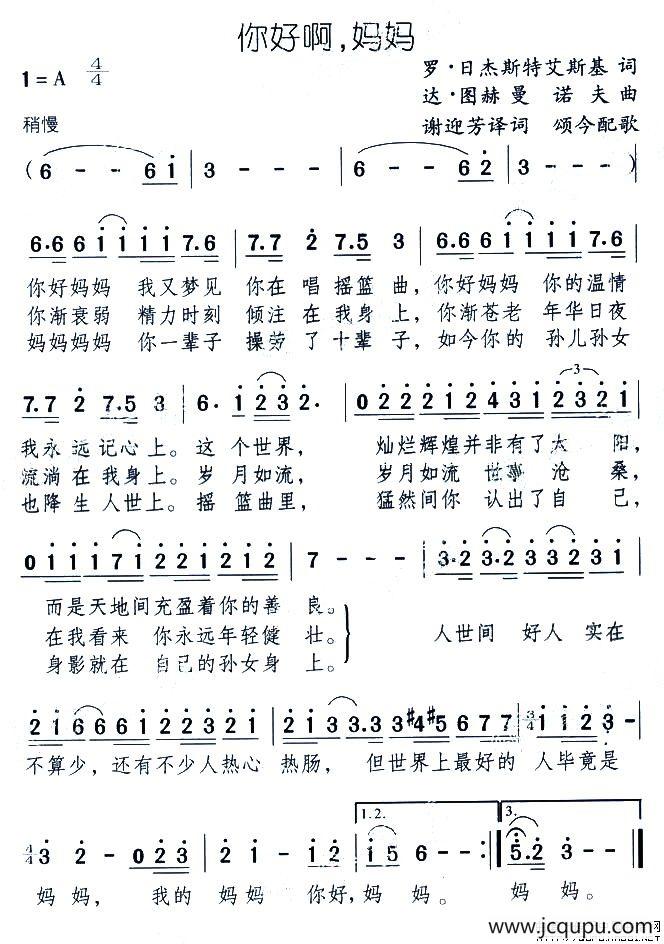 你好啊,妈妈
1=A 4/4
罗·日杰斯特艾斯基 词
达·图赫曼 诺夫曲
稍慢
谢迎芳译词 颂今配歌
(6 - - 6i | 3 - - - | 6 - - 62 | 3 - - -)
6.6 6 i i i i 7.6 | 7.7 2 7.5 3 | 6.6 6 i i i i 7.6
你好妈妈 我又梦见 你在唱摇篮曲,你好妈妈 你的温情
你渐衰弱 精力时刻 倾注在我身上,你渐苍老 年华日夜
妈妈妈妈 你一辈子 操劳了十辈子,如今你的 孙儿孙女
7.7 2 7.5 3 | 6. i 2 3 2. | 0 2 2 2 1 2 4 3 1 2 3 2 1
我永远记心上。这个世界, 灿烂辉煌并非有了太 阳,
流淌在我身上。岁月如流, 岁月如流 世事 沧 桑,
也降生人世上。摇篮曲里, 猛然间你 认出了自 己,
0 1 1 1 7 1 2 2 1 2 1 2 | 7 - - - | 3.2 3.2 3 2 3 2 3 1
而是天地间充盈着你的善 良。
在我看来 你永远年轻健 壮。
身影就在 自己的孙女身 上。
人世间 好人 实在
2 1 6 6 6 1 2 2 3 2 2 1 | 2 1 2 3 3.3 3 #4 #5 6 7 7 | 3/4 1 1 2 3 -
不算少,还有不少人热心 热肠, 但世界上最好的 人毕竟是
1.2.
3.
4/4 3 2 - 0 2 3 | 2 1 - 1 2 | i 5 6 - - :| 5.2 3 - - ||
妈 妈, 我的 妈妈 你好,妈 妈。 妈 妈。
www.jcqupu.com